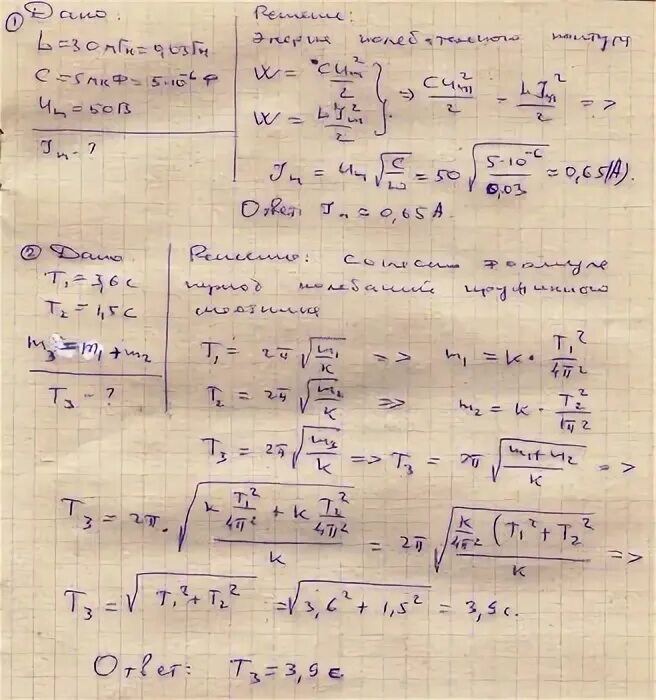 ① Дано:
L = 30 мГн = 0,03 Гн
C = 5 мкФ = 5·10⁻⁶ Ф
Um = 50 В
Im - ?
Решение:
Энергия колебательного контура
W = CUm²/2
W = LIm²/2 } => CUm²/2 = LIm²/2 =>
Im = Um √(C/L) = 50 √(5·10⁻⁶/0,03) = 0,65 (А).
Ответ: Im = 0,65 А.
② Дано
T₁ = 3,6 с
T₂ = 1,5 с
m₃ = m₁ + m₂
T₃ - ?
Решение: Согласно формуле
период колебаний пружинного
маятника
T₁ = 2π √(m₁/k) => m₁ = k · T₁²/4π²
T₂ = 2π √(m₂/k) => m₂ = k · T₂²/4π²
T₃ = 2π √(m₃/k) => T₃ = 2π √((m₁ + m₂)/k) =>
T₃ = 2π · √((k T₁²/4π² + k T₂²/4π²)/k) = 2π √(k/4π² (T₁² + T₂²)/k) =>
T₃ = √(T₁² + T₂²) = √(3,6² + 1,5²) = 3,9 с.
Ответ: T₃ = 3,9 с.